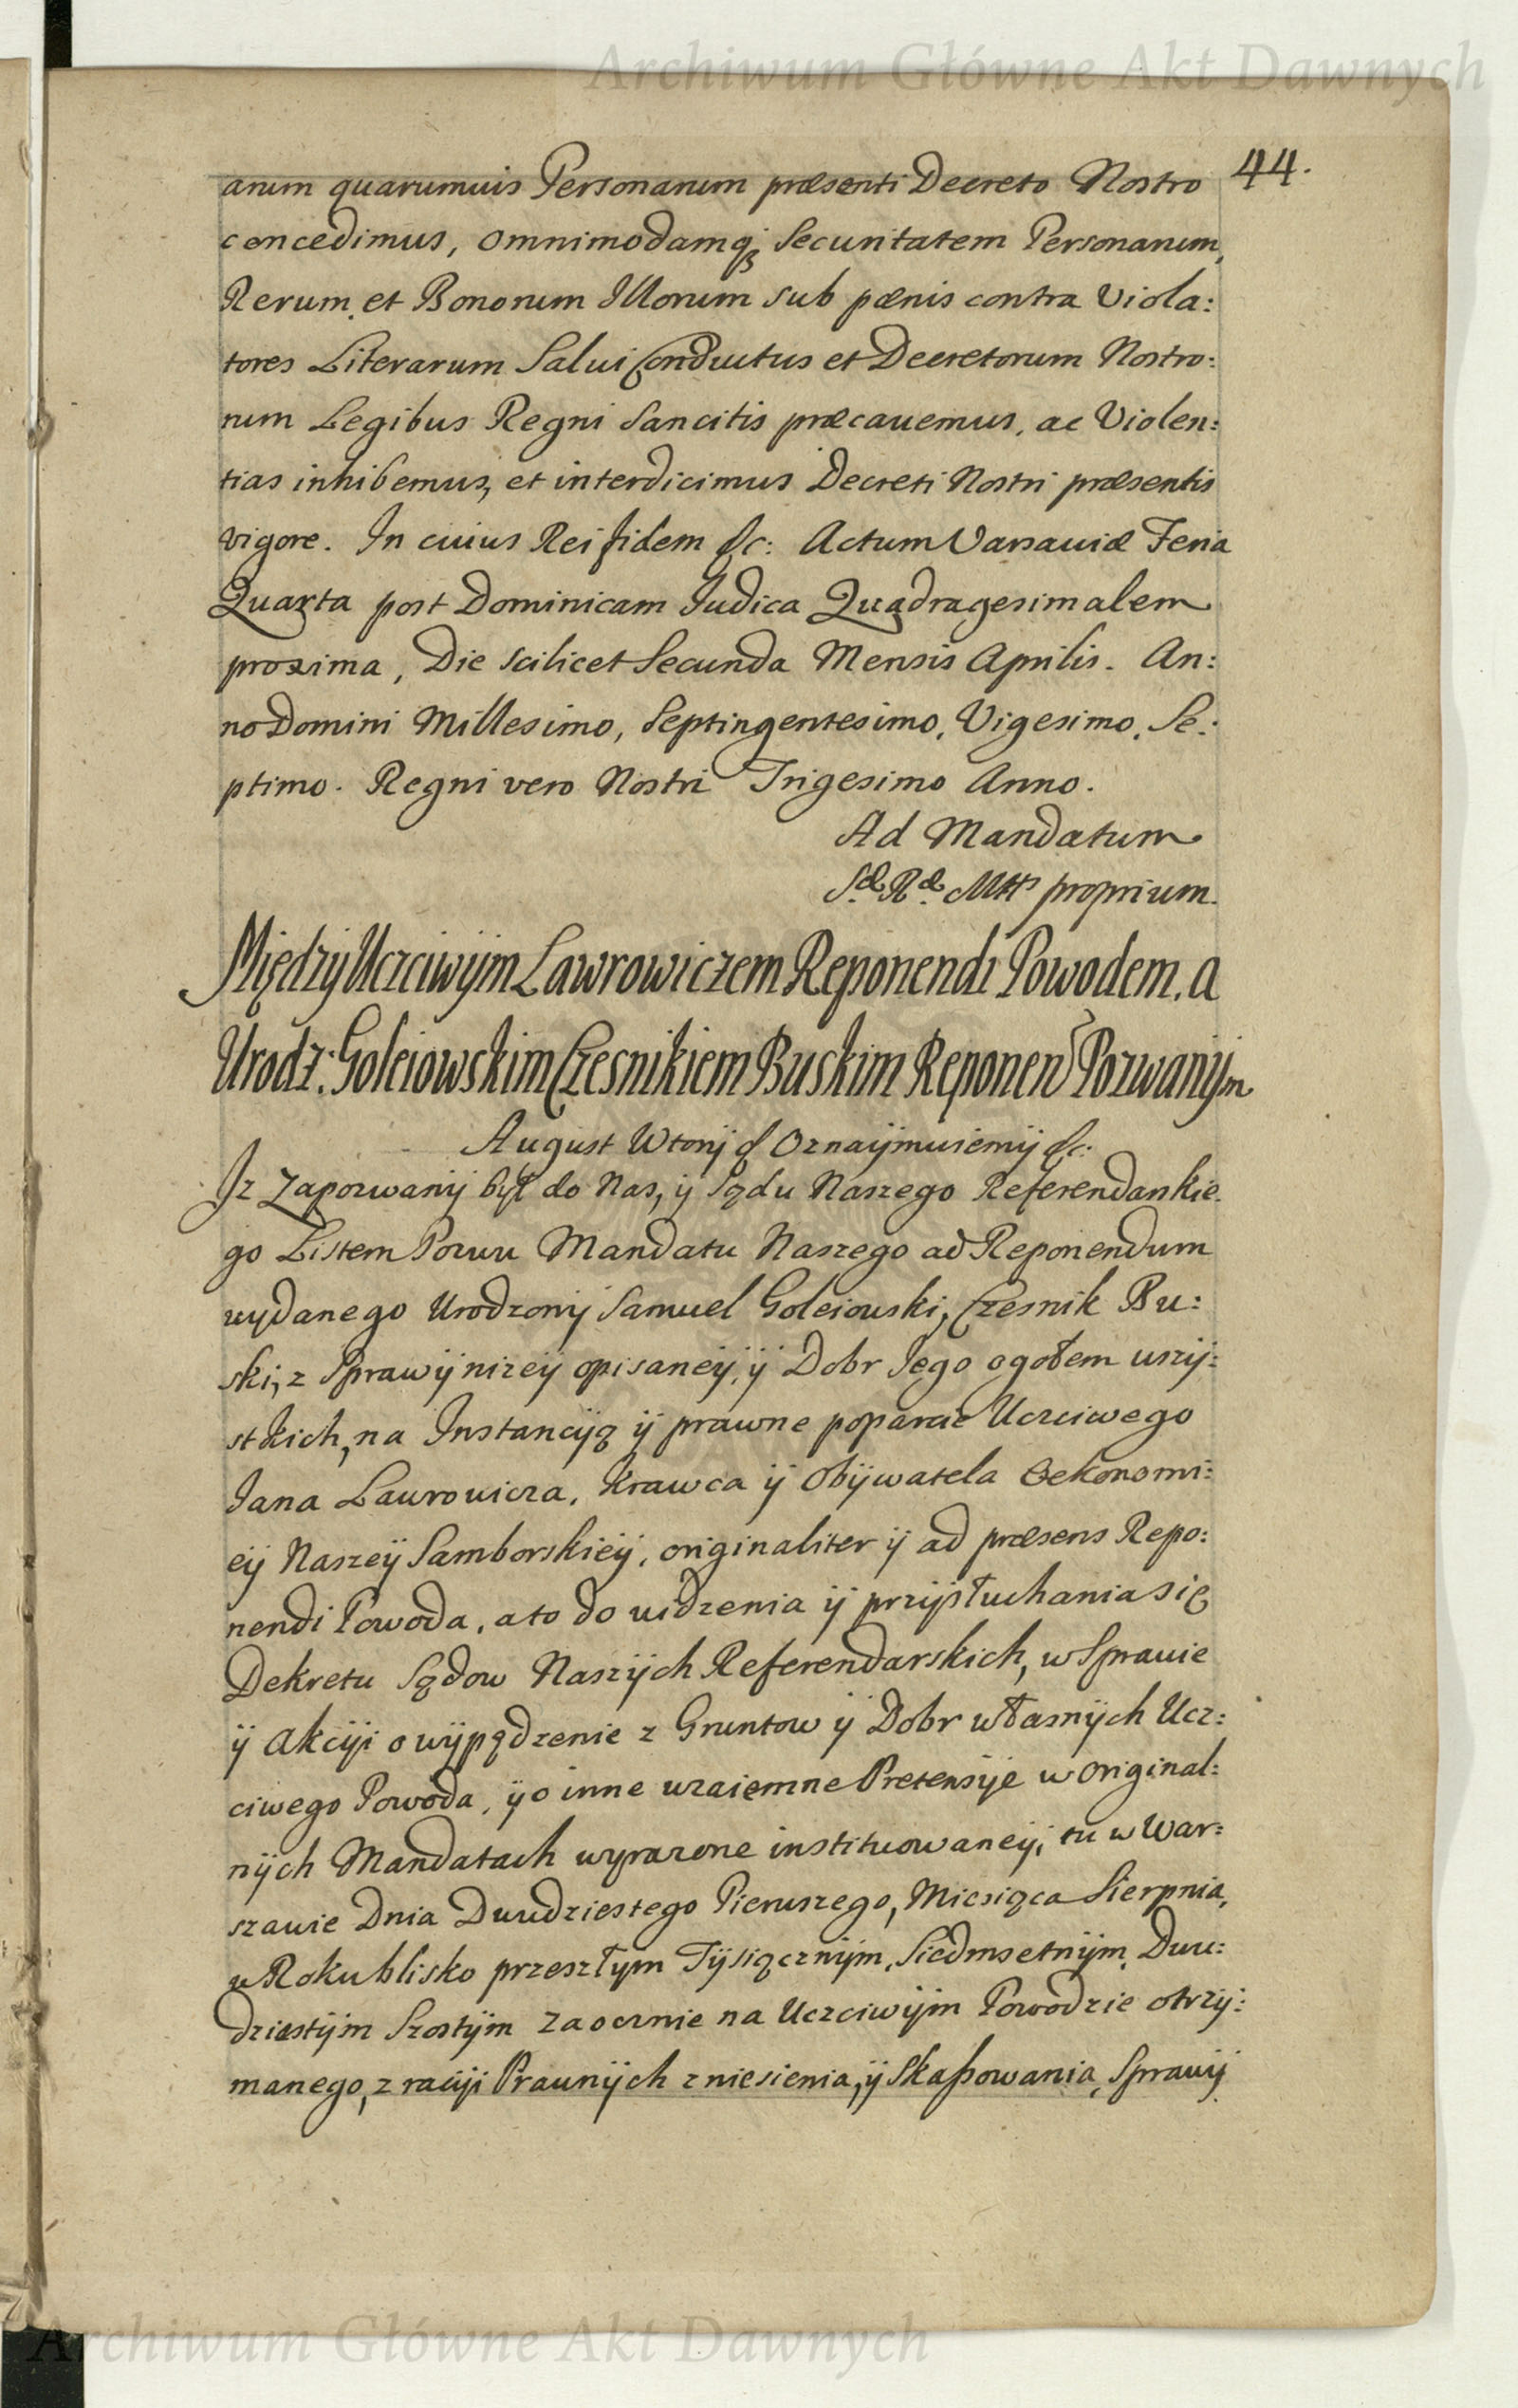 Archiwum Główne Akt Dawnych
44.
arum quarumuis Personarum præsenti Decreto Nostro
concedimus, omnimodamq; Securitatem Personarum,
Rerum et Bonorum Illorum sub pœnis contra Viola:
tores Literarum Salui Conductus et Decretorum Nostro:
rum Legibus Regni Sancitis præcauemus, ac Violen:
tias inhibemus, et interdicimus Decreti Nostri præsentis
vigore. In cuius Rei fidem &c: Actum Varsauiæ Feria
Quarta post Dominicam Iudica Quadragesimalem
proxima, Die scilicet Secunda Mensis Aprilis. An:
no Domini Millesimo, Septingentesimo, Vigesimo, Se:
ptimo. Regni vero Nostri Trigesimo Anno.
Ad Mandatum
S.æ R.æ Mttis proprium.
Między Uczciwÿm Lawrowiczem Reponendi Powodem, a
Urodz: Goleiowskim Czesnikiem Buskim Reponen Pozwanÿm
August Wtorÿ & Oznaÿmuiemÿ &c:
Iz Zapozwanÿ był do Nas, ÿ Sądu Naszego Referendarskie
go Listem Pozwu Mandatu Naszego ad Reponendum
wydanego Urodzonÿ Samuel Goleiowski, Czesnik Bu:
ski, z Sprawÿ nizeÿ opisaneÿ, ÿ Dobr Iego ogołem wszÿ:
stkich, na Instancÿą ÿ prawne poparcie Uczciwego
Iana Lawrowicza, Krawca ÿ Obÿwatela Oekonomi:
eÿ Naszeÿ Samborskieÿ, originaliter ÿ ad præsens Repo:
nendi Powoda, a to do widzenia ÿ przÿsłuchania się
Dekretu Sądow Naszÿch Referendarskich, w Sprawie
ÿ Akcÿi o wÿpądzenie z Gruntow ÿ Dobr własnÿch Ucz:
ciwego Powoda, ÿ o inne wzaiemne Pretensÿe w Original:
nÿch Mandatach wyrazone instituowaneÿ, tu w War:
szawie Dnia Dwudziestego Pierwszego, Miesiąca Sierpnia,
w Roku blisko przeszłym Tÿsiącznÿm, Siedmsetnÿm, Dwu:
dziestÿm Szostÿm zaocznie na Uczciwÿm Powodzie otrzÿ:
manego, z racÿi Prawnÿch zniesienia, ÿ Skaßowania, Sprawÿ
Archiwum Główne Akt Dawnych